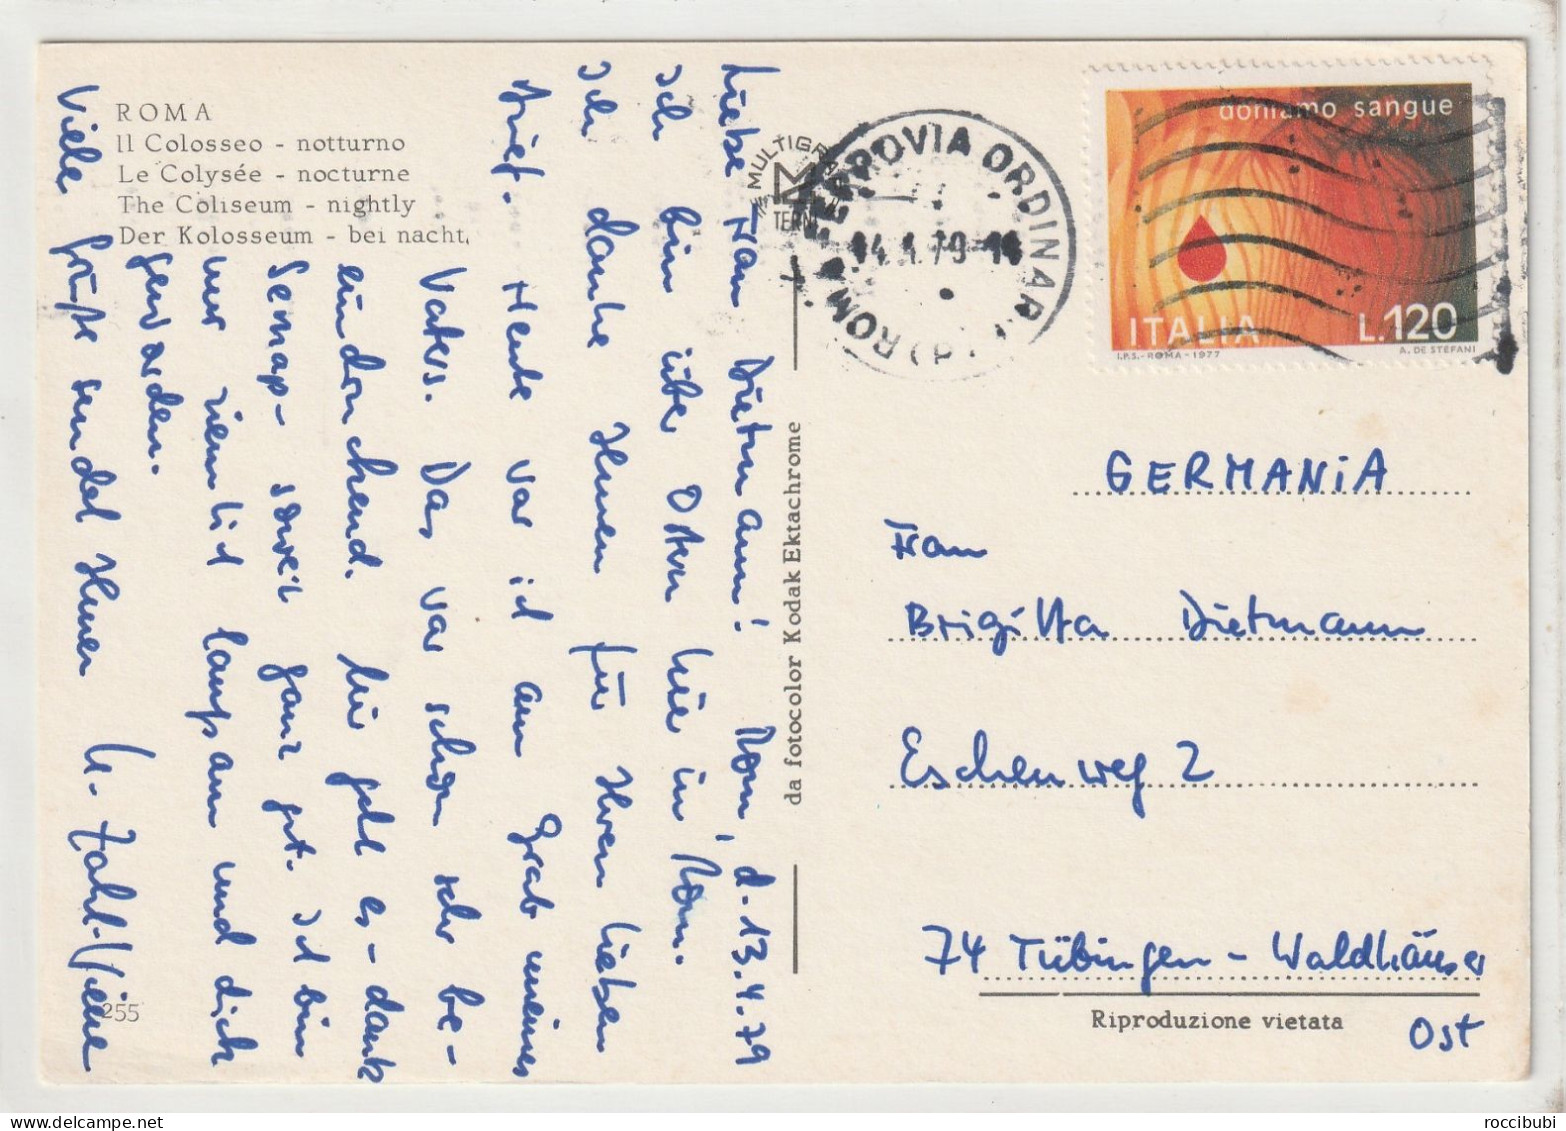 ROMA
Il Colosseo - notturno
Le Colysée - nocturne
The Coliseum - nightly
Der Kolosseum - bei nacht,
Rom, d. 13.4.79
Liebe Frau Dietmann!
Ich bin über Ostern hier in Rom.
Ich danke Ihnen für Ihren lieben
Brief. Heute war ich am Grab meines
Vaters. Das war schon sehr be-
eindruckend. Mir geht es - dank
Semap - soweit ganz gut. Ich bin
nur ziemlich langsam und dick
geworden.
Viele Grüße sendet Ihnen
255
da fotocolor Kodak Ektachrome
MULTIGRA
TERNI
FERROVIA ORDINAR
ROMA
14.4.79-14
doniamo sangue
ITALIA L.120
I.P.S.-ROMA-1977 A. DE STEFANI
GERMANiA
Frau
Brigitta Dietmann
Eschenweg 2
74 Tübingen - Waldhäuser
Ost
Riproduzione vietata
roccibubi